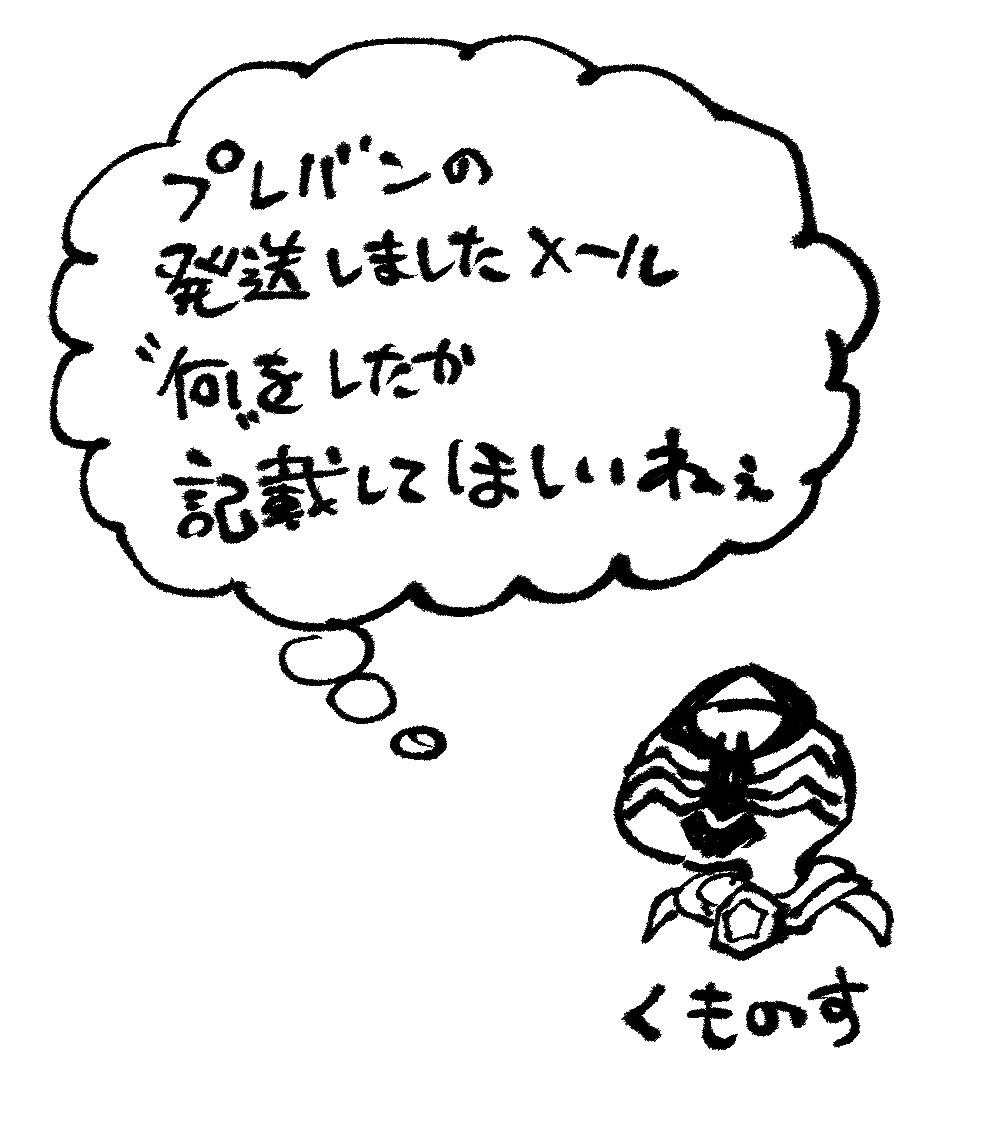 プレバンの
発送しましたメール
〝何を〟したか
記載してほしいねぇ
くものす